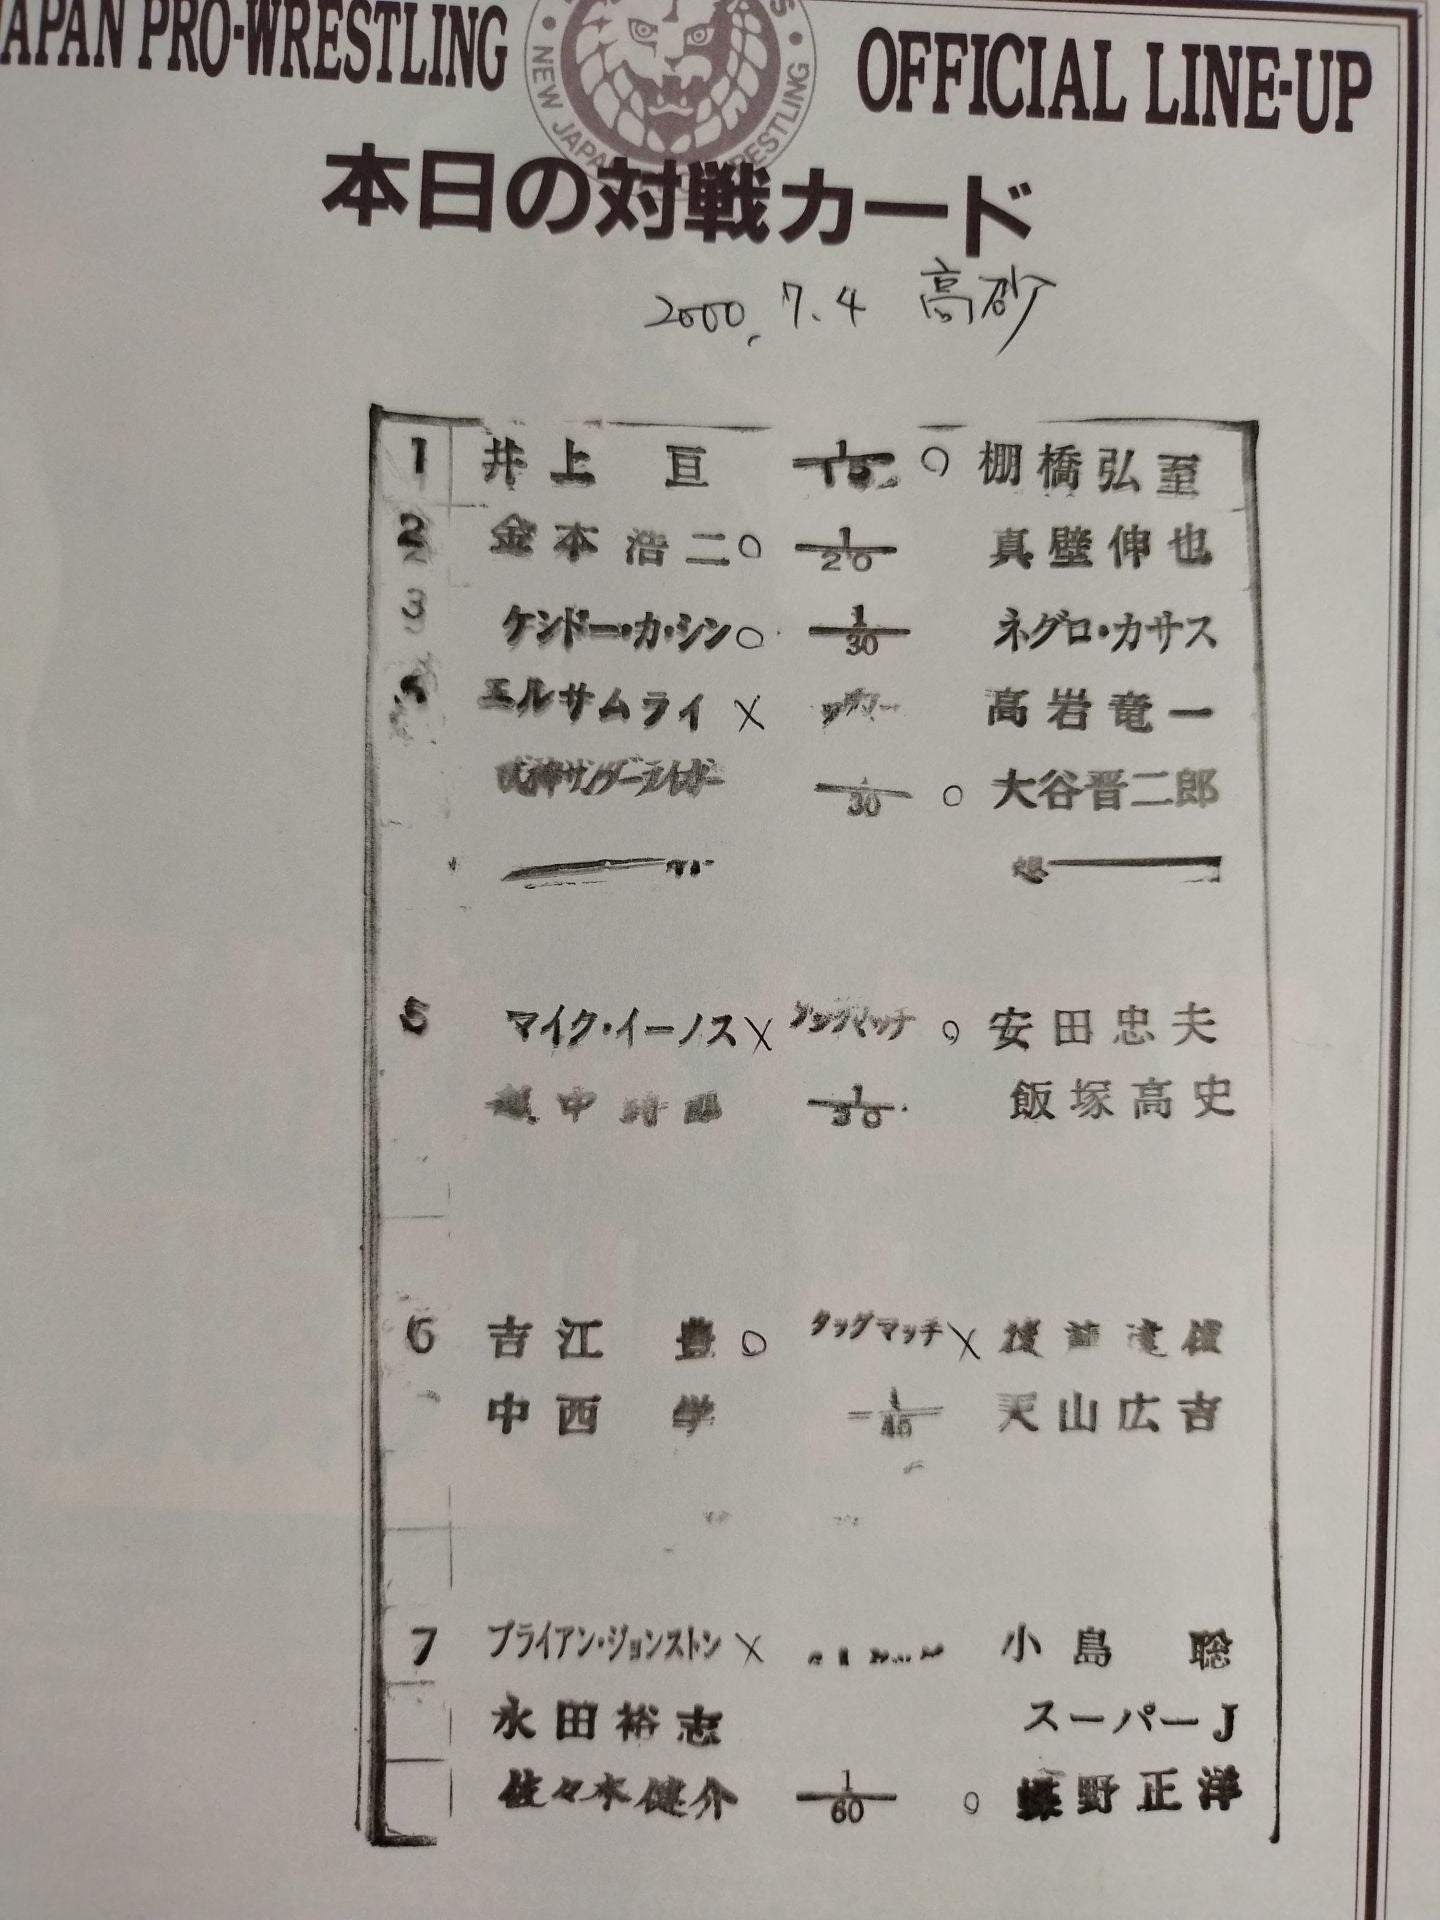 APAN PRO-WRESTLING
OFFICIAL LINE-UP
NEW JAPAN WRESTLING
本日の対戦カード
2000.7.4 高砂
1 井上 亘 1/15 ○ 棚橋弘至
2 金本浩二○ 1/20 真壁伸也
3 ケンドー・カ・シン○ 1/30 ネグロ・カサス
4 エルサムライ × 高岩竜一
サンダーライガー 30 ○ 大谷晋二郎
5 マイク・イーノス× タッグマッチ ○ 安田忠夫
越中詩郎 1/30 飯塚高史
6 吉江 豊○ タッグマッチ ×
中西 学 1/45 天山広吉
7 ブライアン・ジョンストン × 小島 聡
永田裕志 スーパーJ
佐々木健介 1/60 ○ 蝶野正洋